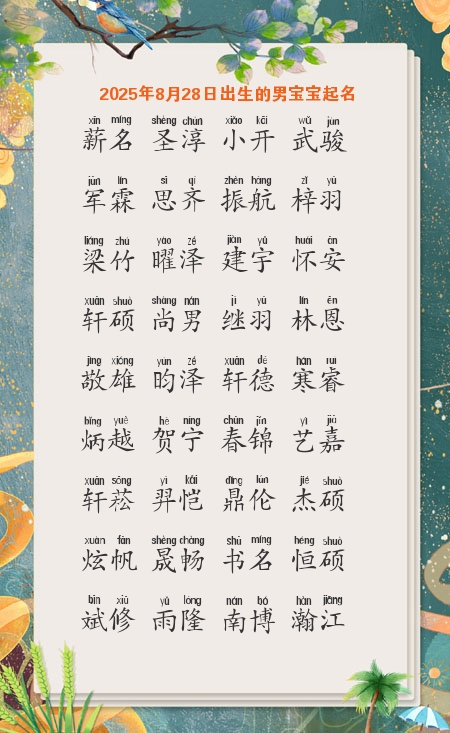 2025年8月28日出生的男宝宝起名
xīn míng shèng chún xiǎo kāi wǔ jùn
薪名 圣淳 小开 武骏
jūn lín sī qí zhèn háng zǐ yǔ
军霖 思齐 振航 梓羽
liáng zhú yào zé jiàn yǔ huái ān
梁竹 曜泽 建宇 怀安
xuān shuò shàng nán jì yǔ lín ēn
轩硕 尚男 继羽 林恩
jìng xióng yún zé xuān dé hán ruì
敬雄 昀泽 轩德 寒睿
bǐng yuè hè níng chūn jǐn yì jiā
炳越 贺宁 春锦 艺嘉
xuān sōng yì kǎi dǐng lún jié shuò
轩菘 羿恺 鼎伦 杰硕
xuàn fān shèng chàng shū míng héng shuò
炫帆 晟畅 书名 恒硕
bīn xiū yǔ lóng nán bó hàn jiāng
斌修 雨隆 南博 瀚江